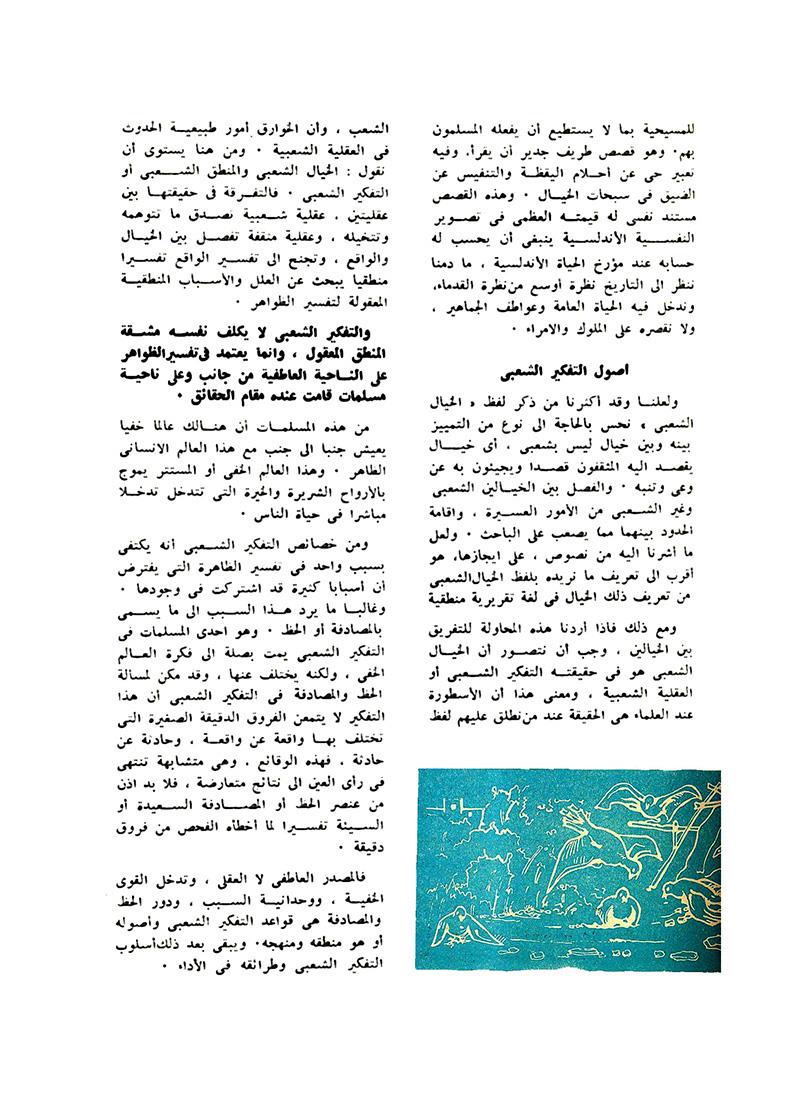 للمسيحية بما لا يستطيع أن يفعله المسلمون
بهم٠ وهو قصص طريف جدير أن يقرأ. وفيه
تعبير حى عن أحلام اليقظة والتنفيس عن
الضيق فى سبحات الخيال ٠ وهذه القصص
مستند نفسى له قيمته العظمى فى تصوير
النفسية الأندلسية ينبغى أن يحسب له
حسابه عند مؤرخ الحياة الأندلسية ، ما دمنا
ننظر الى التاريخ نظرة أوسع من نظرة القدماء،
وندخل فيه الحياة العامة وعواطف الجماهير ،
ولا نقصره على الملوك والامراء ٠
أصول التفكير الشعبى
ولعلنا وقد أكثرنا من ذكر لفظ « الخيال
الشعبى » نحس بالحاجة الى نوع من التمييز
بينه وبين خيال ليس بشعبى ، أى خيال
يقصد اليه المثقفون قصدا ويجيئون به عن
وعى وتنبه ٠ والفصل بين الخيالين الشعبى
وغير الشعبى من الأمور العسيرة ، واقامة
الحدود بينهما مما يصعب على الباحث ٠ ولعل
ما أشرنا اليه من نصوص ، على ايجازها، هو
أقرب الى تعريف ما نريده بلفظ الخيال الشعبى
من تعريف ذلك الخيال فى لغة تقريرية منطقية
ومع ذلك فاذا أردنا هذه المحاولة للتفريق
بين الخيالين ، وجب أن نتصور أن الخيال
الشعبى هو فى حقيقته التفكير الشعبى أو
العقلية الشعبية ، ومعنى هذا أن الأسطورة
عند العلماء هى الحقيقة عند من نطلق عليهم لفظ
الشعب ، وأن الخوارق أمور طبيعية الحدوث
فى العقلية الشعبية ٠ ومن هنا يستوى أن
نقول : الخيال الشعبى والمنطق الشعبى أو
التفكير الشعبى ٠ فالتفرقة فى حقيقتها بين
عقليتين ، عقلية شعبية تصدق ما تتوهمه
وتتخيله ، وعقلية مثقفة تفصل بين الخيال
والواقع ، وتجنح الى تفسير الواقع تفسيرا
منطقيا يبحث عن العلل والأسباب المنطقية
المعقولة لتفسير الظواهر ٠
والتفكير الشعبى لا يكلف نفسه مشقة
المنطق المعقول ، وانما يعتمد فى تفسير الظواهر
على الناحية العاطفية من جانب وعلى ناحية
مسلمات قامت عنده مقام الحقائق ٠
من هذه المسلمات أن هنالك عالما خفيا
يعيش جنبا الى جنب مع هذا العالم الانسانى
الظاهر ٠ وهذا العالم الخفى أو المستتر يموج
بالأرواح الشريرة والخيرة التى تتدخل تدخلا
مباشرا فى حياة الناس ٠
ومن خصائص التفكير الشعبى أنه يكتفى
بسبب واحد فى تفسير الظاهرة التى يفترض
أن أسبابا كثيرة قد اشتركت فى وجودها ٠
وغالبا ما يرد هذا السبب الى ما يسمى
بالمصادفة أو الحظ ٠ وهو احدى المسلمات فى
التفكير الشعبى يمت بصلة الى فكرة العالم
الخفى ، ولكنه يختلف عنها ، وقد مكن لمسألة
الحظ والمصادفة فى التفكير الشعبى أن هذا
التفكير لا يتمعن الفروق الدقيقة الصغيرة التى
تختلف بها واقعة عن واقعة ، وحادثة عن
حادثة ، فهذه الوقائع ، وهى متشابهة تنتهى
فى رأى العين الى نتائج متعارضة ، فلا بد اذن
من عنصر الحظ أو المصادفة السعيدة أو
السيئة تفسيرا لما أخطأه الفحص من فروق
دقيقة ٠
فالمصدر العاطفى لا العقلى ، وتدخل القوى
الخفية ، ووحدانية السبب ، ودور الحظ
والمصادفة هى قواعد التفكير الشعبى وأصوله
أو هو منطقه ومنهجه٠ ويبقى بعد ذلك أسلوب
التفكير الشعبى وطرائقه فى الأداء ٠